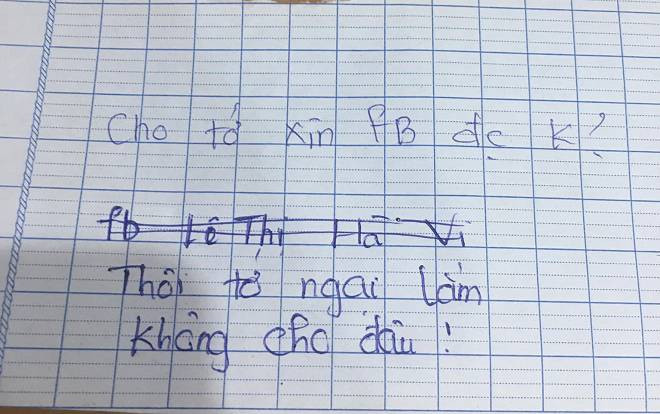 Cho tớ xin fB đc k?
fb Lê Thị Hà Vi
Thôi tớ ngại lắm
không cho đâu!